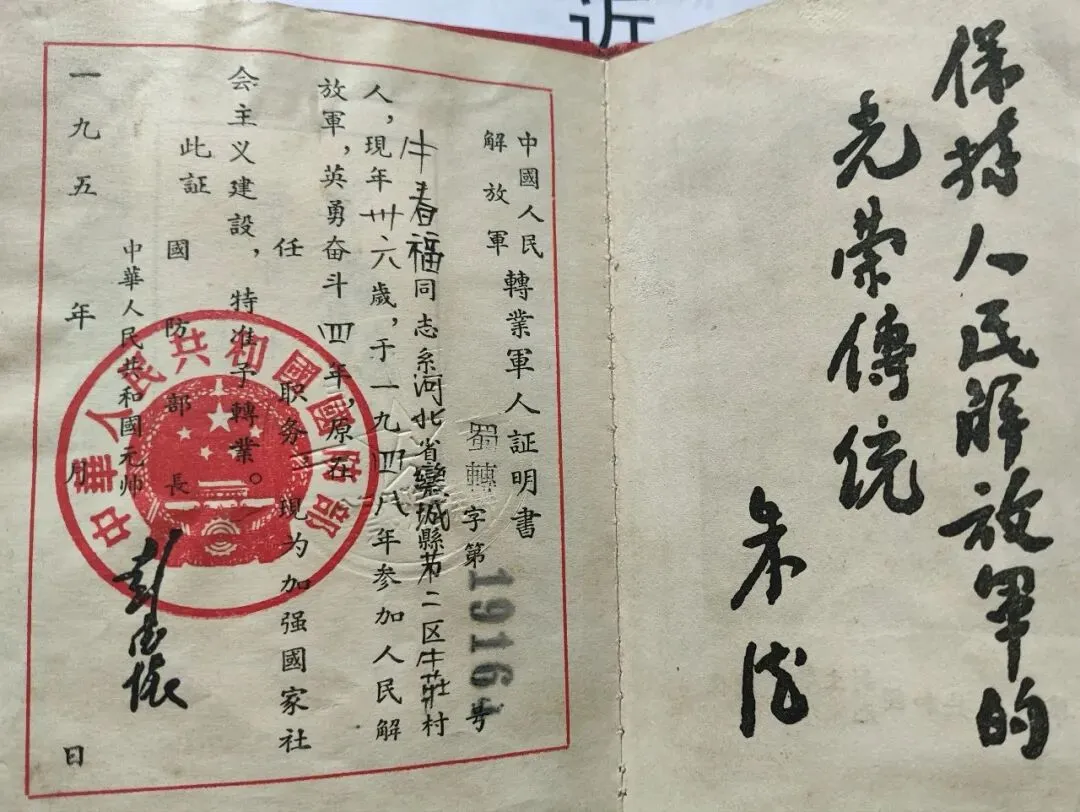 保持人民解放軍的
光荣傳統
朱德
中國人民
解放軍
轉業軍人証明書
蜀轉字第1916号
牛春福同志系河北省欒城縣第二区牛莊村
人,現年卅六歲,于一九四八年参加人民解
放軍,英勇奋斗四年,原在
任 职务 現为加强國家社
会主义建設,特准予轉業。
此証
國防部長
中華人民共和國元帅
彭德懷
一九五 年 月 日
中華人民共和國國防部